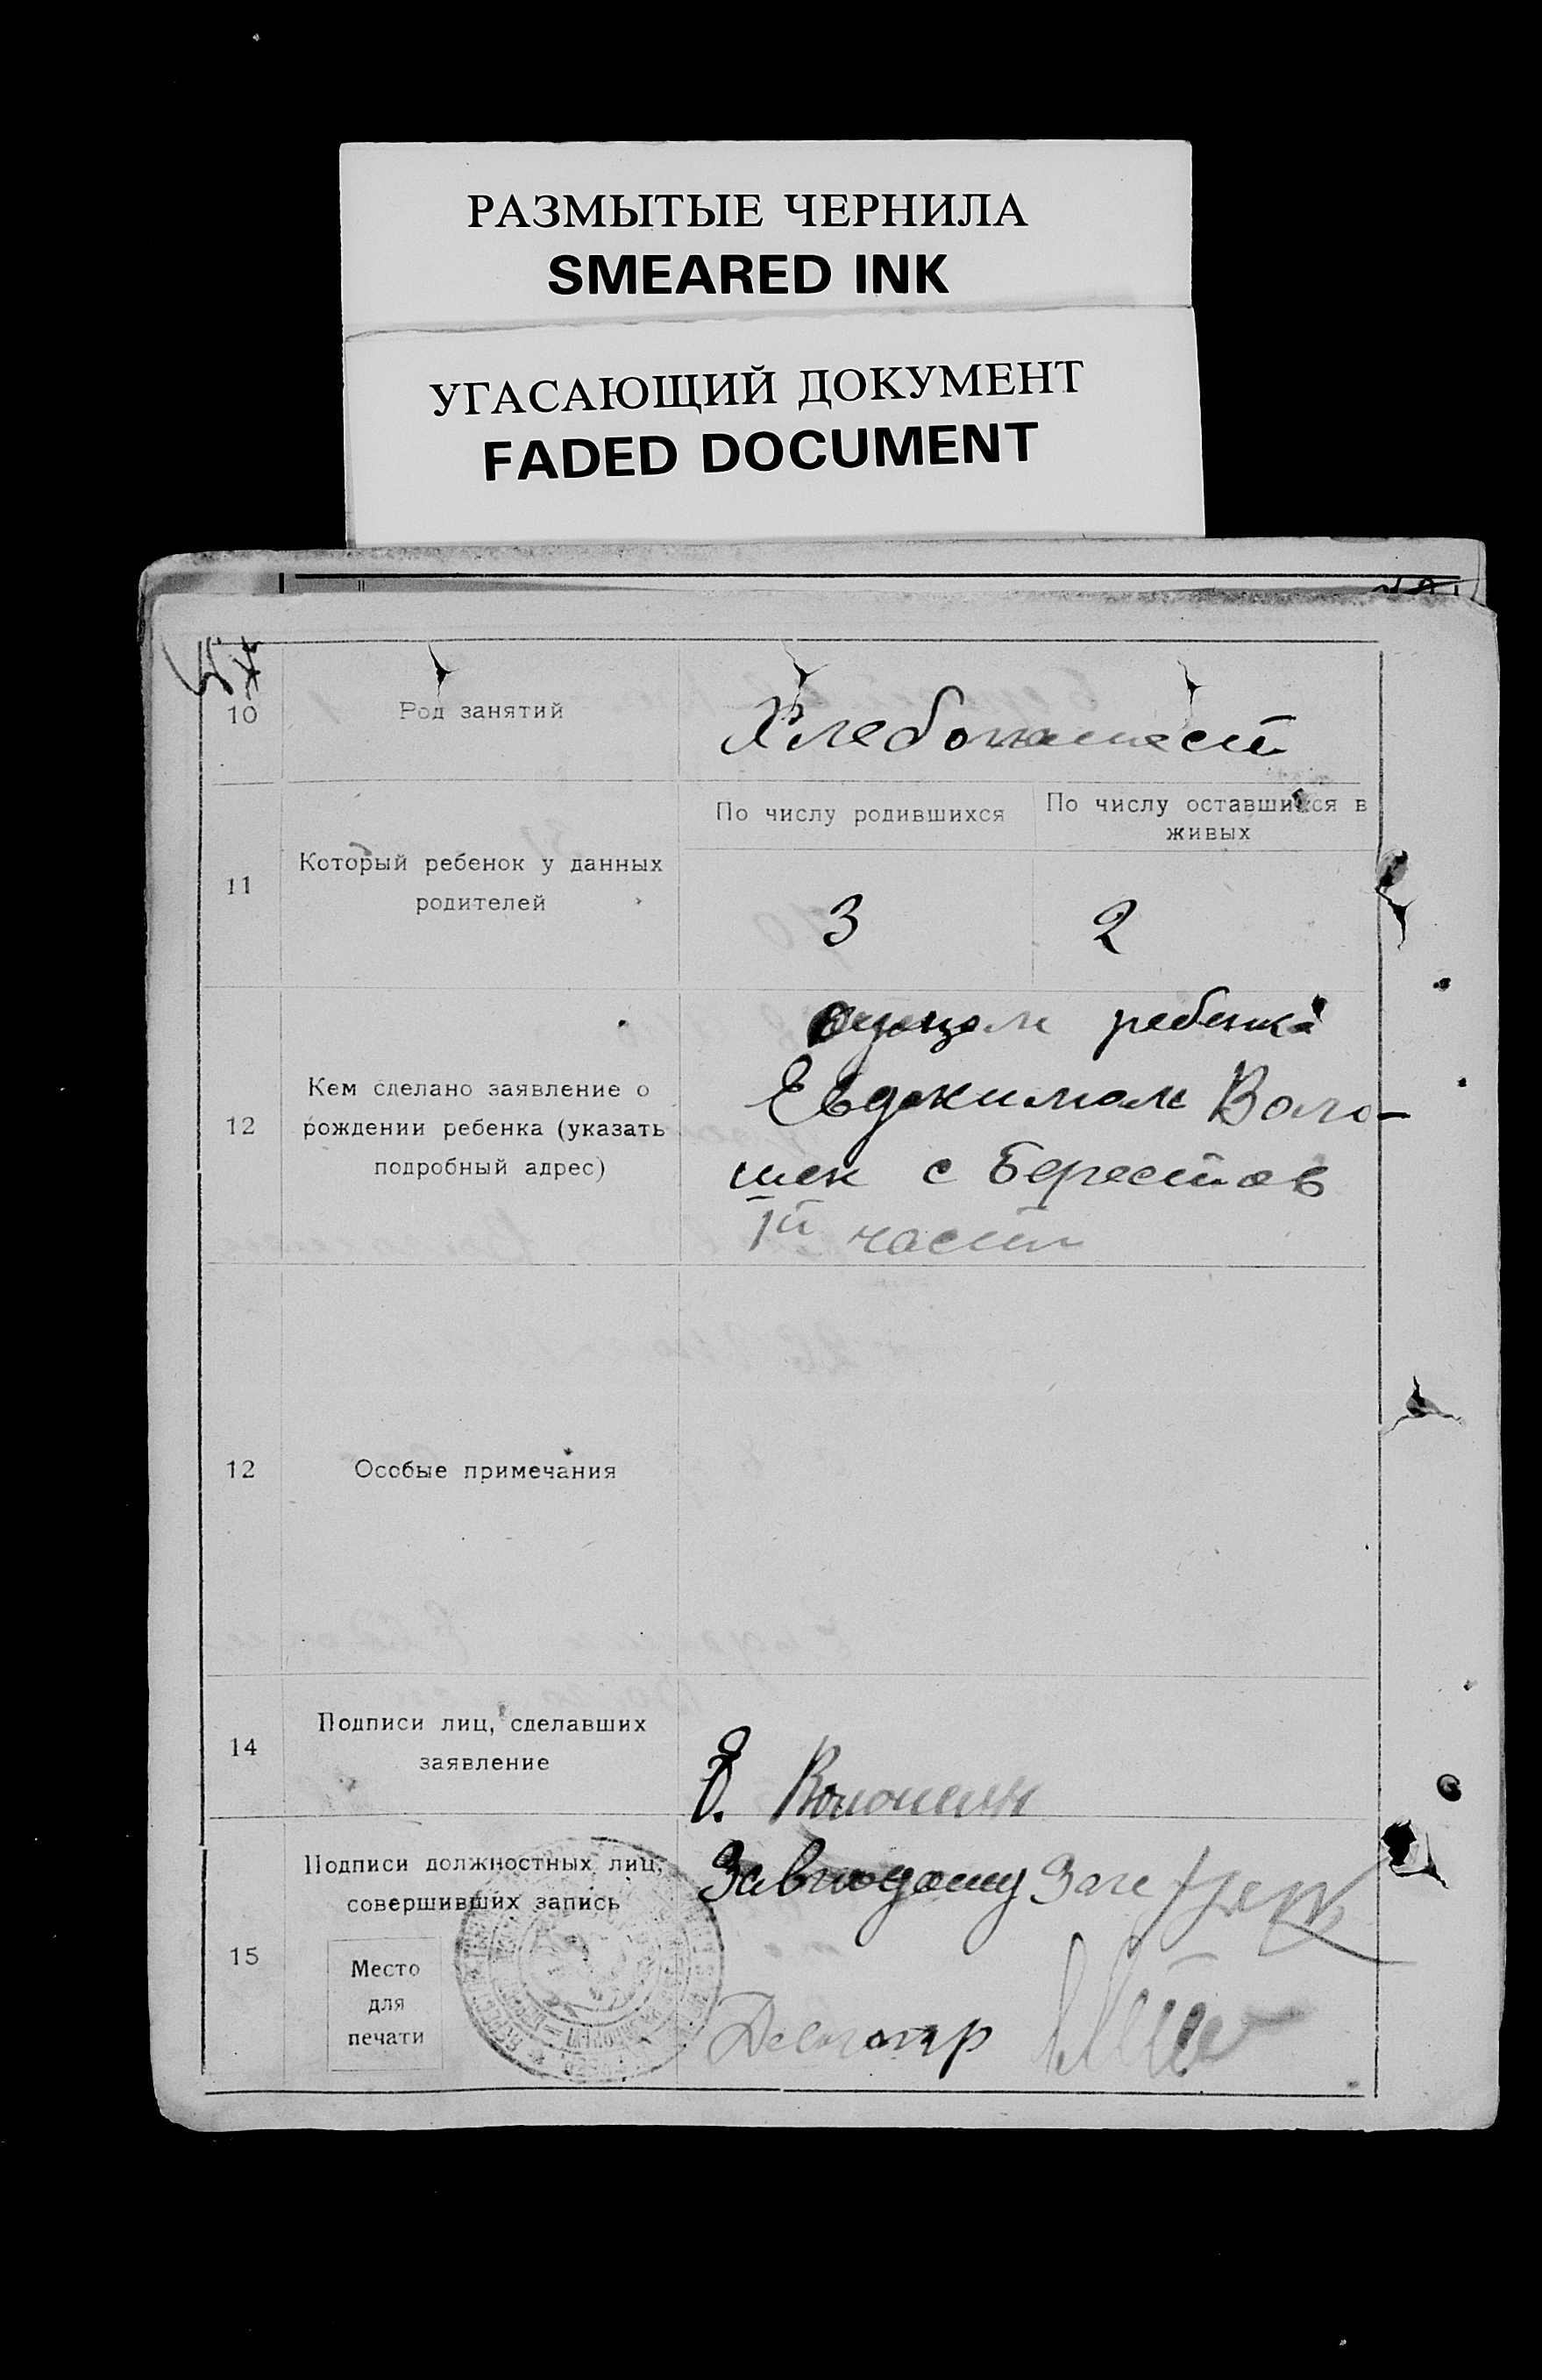 РАЗМЫТЫЕ ЧЕРНИЛА
SMEARED INK
УГАСАЮЩИЙ ДОКУМЕНТ
FADED DOCUMENT
10
Род занятий
Хлебопашест
11
Который ребенок у данных
родителей
По числу родившихся
По числу оставшихся в
живых
3
2
12
Кем сделано заявление о
рождении ребенка (указать
подробный адрес)
ребенка
Евдокимом Воло-
шек с Берестов
1й части
12
Особые примечания
14
Подписи лиц, сделавших
заявление
Е. Волошен
15
Подписи должностных лиц,
совершивших запись
Место
для
печати
Делопр